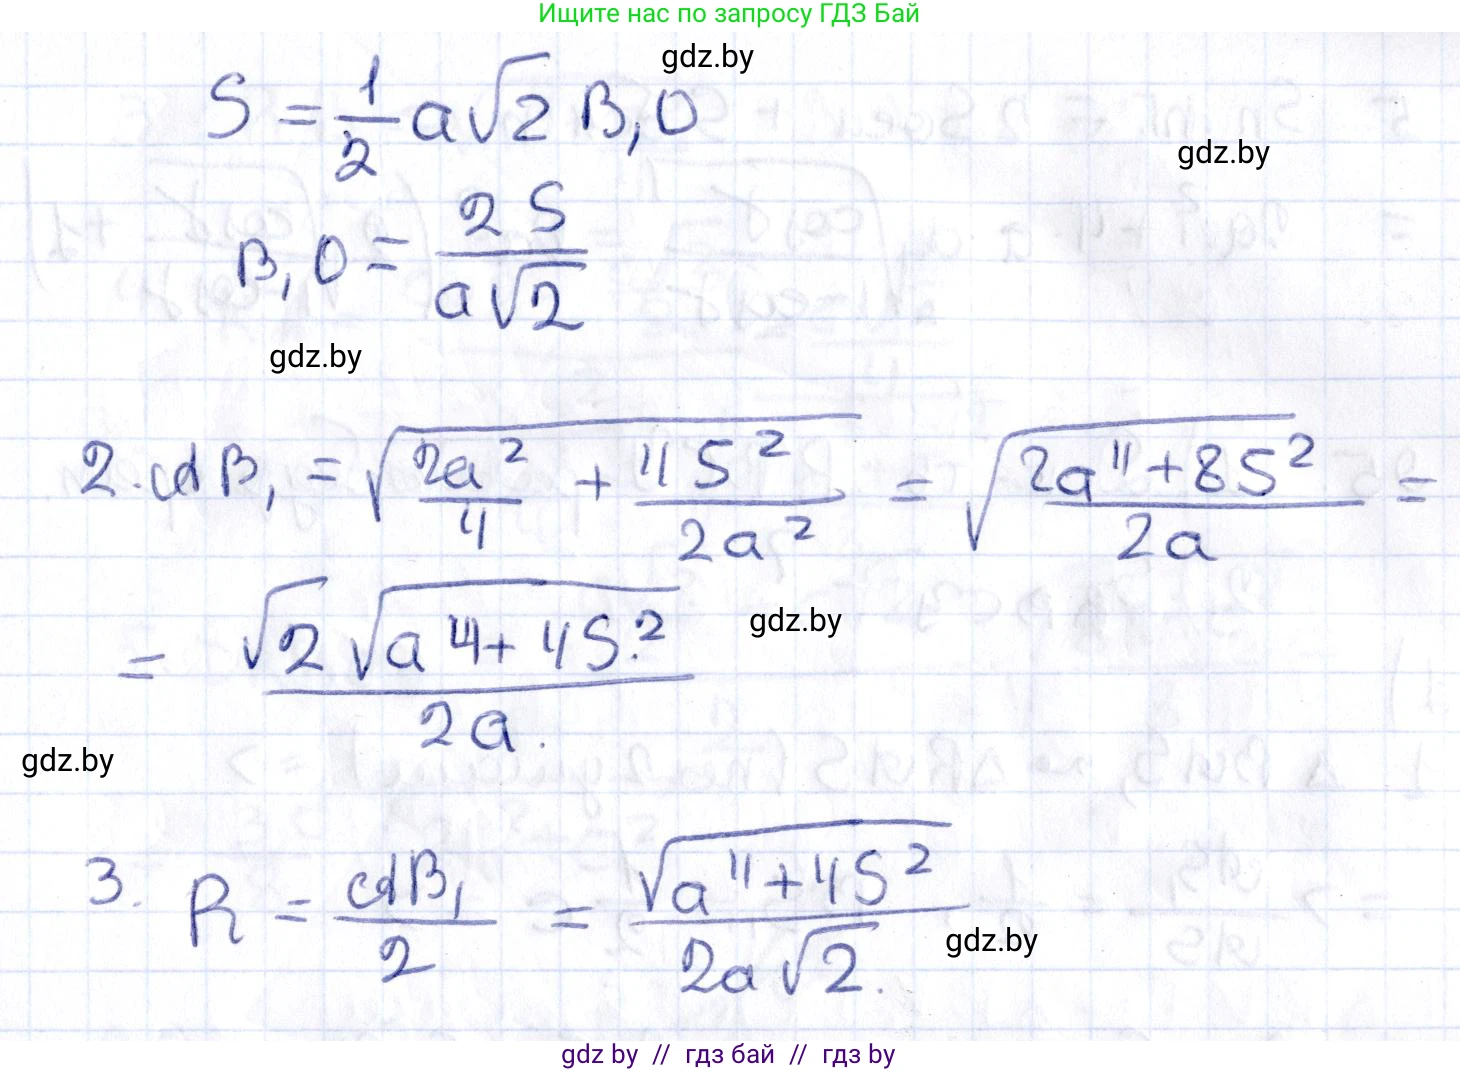 Ищите нас по запросу ГДЗ Бай
gdz.by
S = 1/2 a√2 B₁O
gdz.by
B₁O = 2S/(a√2)
gdz.by
2. AB₁ = √(2a²/4 + 4S²/(2a²)) = √(2a⁴+8S²)/2a =
= √2 √(a⁴ + 4S²)/2a.
gdz.by
gdz.by
3. R = AB₁/2 = √(a⁴+4S²)/(2a√2).
gdz.by
gdz by // гдз бай // гдз by